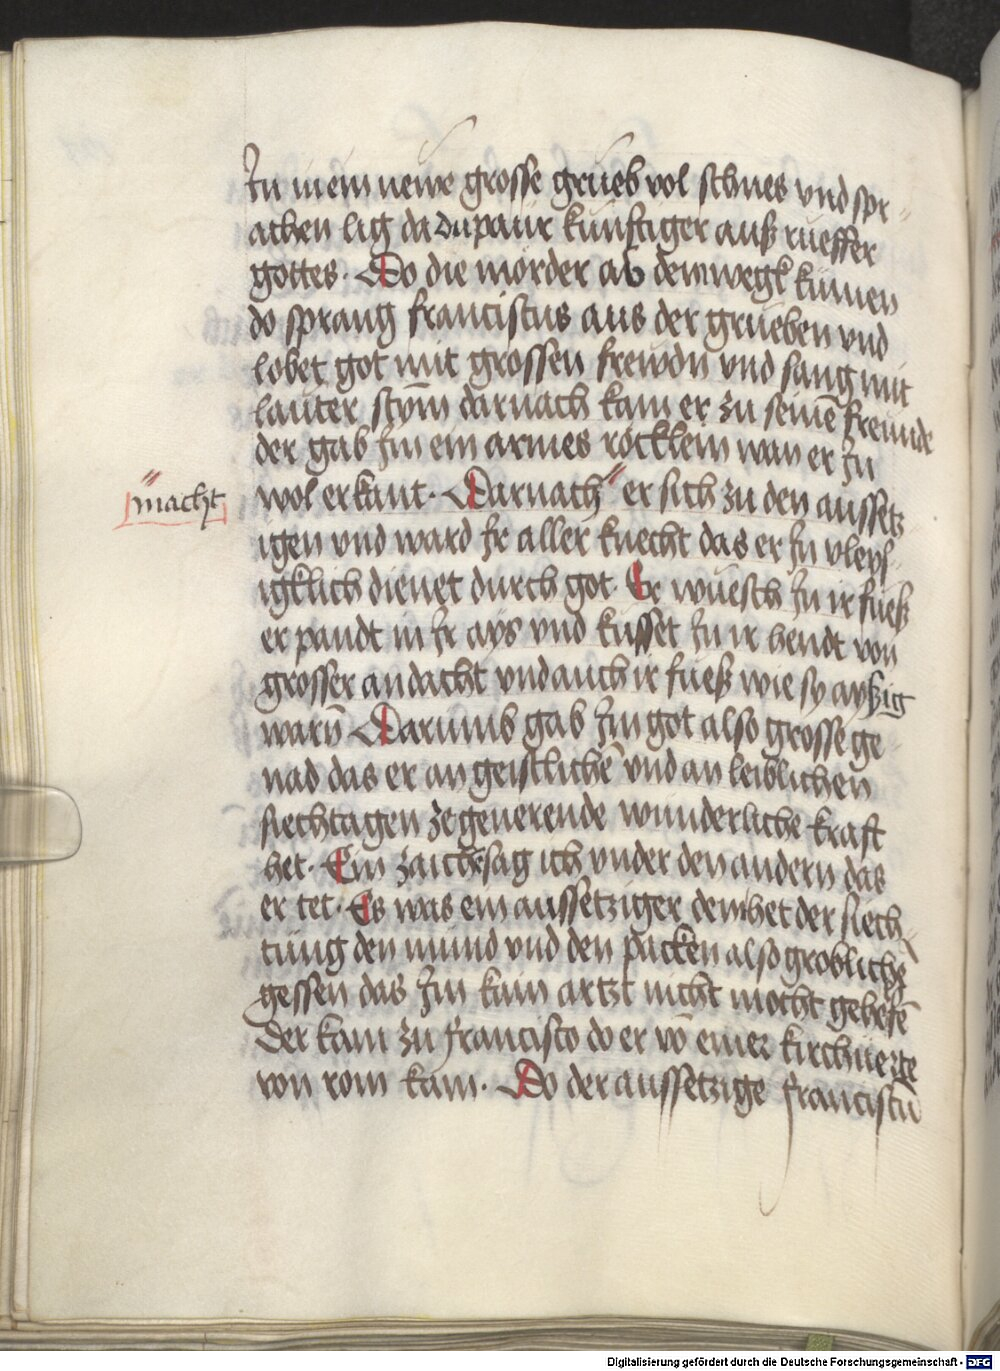 Jn inein newe grosse grueb vol schnes vnd spr-
achen lig da du paur kunftiger auß rueffer
gottes. Do die mörder ab dem wegk kumen
do sprang franciscus aus der grueben vnd
lobet got mit grossen frewdn vnd sang mit
lauter stym̄ darnach kam er zu seinē freunde
der gab Jm ein armes röcklein wan er Jn
wol erkant. Darnach " er sich zu den aussetz
" macht
igen vnd ward Jr aller knecht das er Jn vleys-
igklich dienet durch got. Er wuesch Jn ir fueß
er pandt in Jr ays vnd kusset Jn ir hendt von
grosser andacht vnd auch ir fueß wie sy ayssig
warn̄ Darumb gab Jm got also grosse ge-
nad das er an geistlichē vnd an leiblichen
siechtagen ze generende wunderliche kraft
het. Ein zaichē sag ich vnder den andern das
er tet. Es was ein aussetziger dem het der siech-
tung den mund vnd den packen also groblichē
gessen das Jm kain artzt nicht mocht gehelfē
Der kam zu francisco do er vō einer kirchuerte
von rom kam. Do der aussetzige franciscū
Digitalisierung gefördert durch die Deutsche Forschungsgemeinschaft - DFG